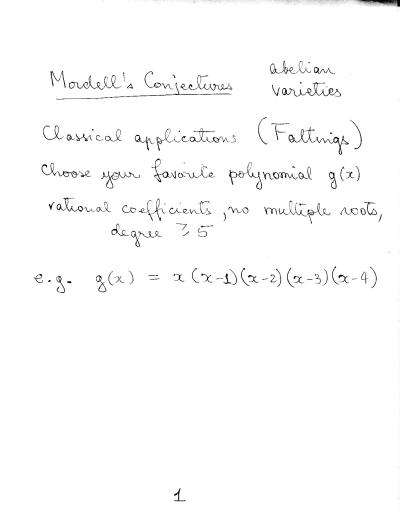 Mordell's Conjectures
abelian
varieties
Classical applications (Faltings)
Choose your favorite polynomial g(x)
rational coefficients, no multiple roots,
degree ≥ 5
e.g. g(x) = x(x-1)(x-2)(x-3)(x-4)
1